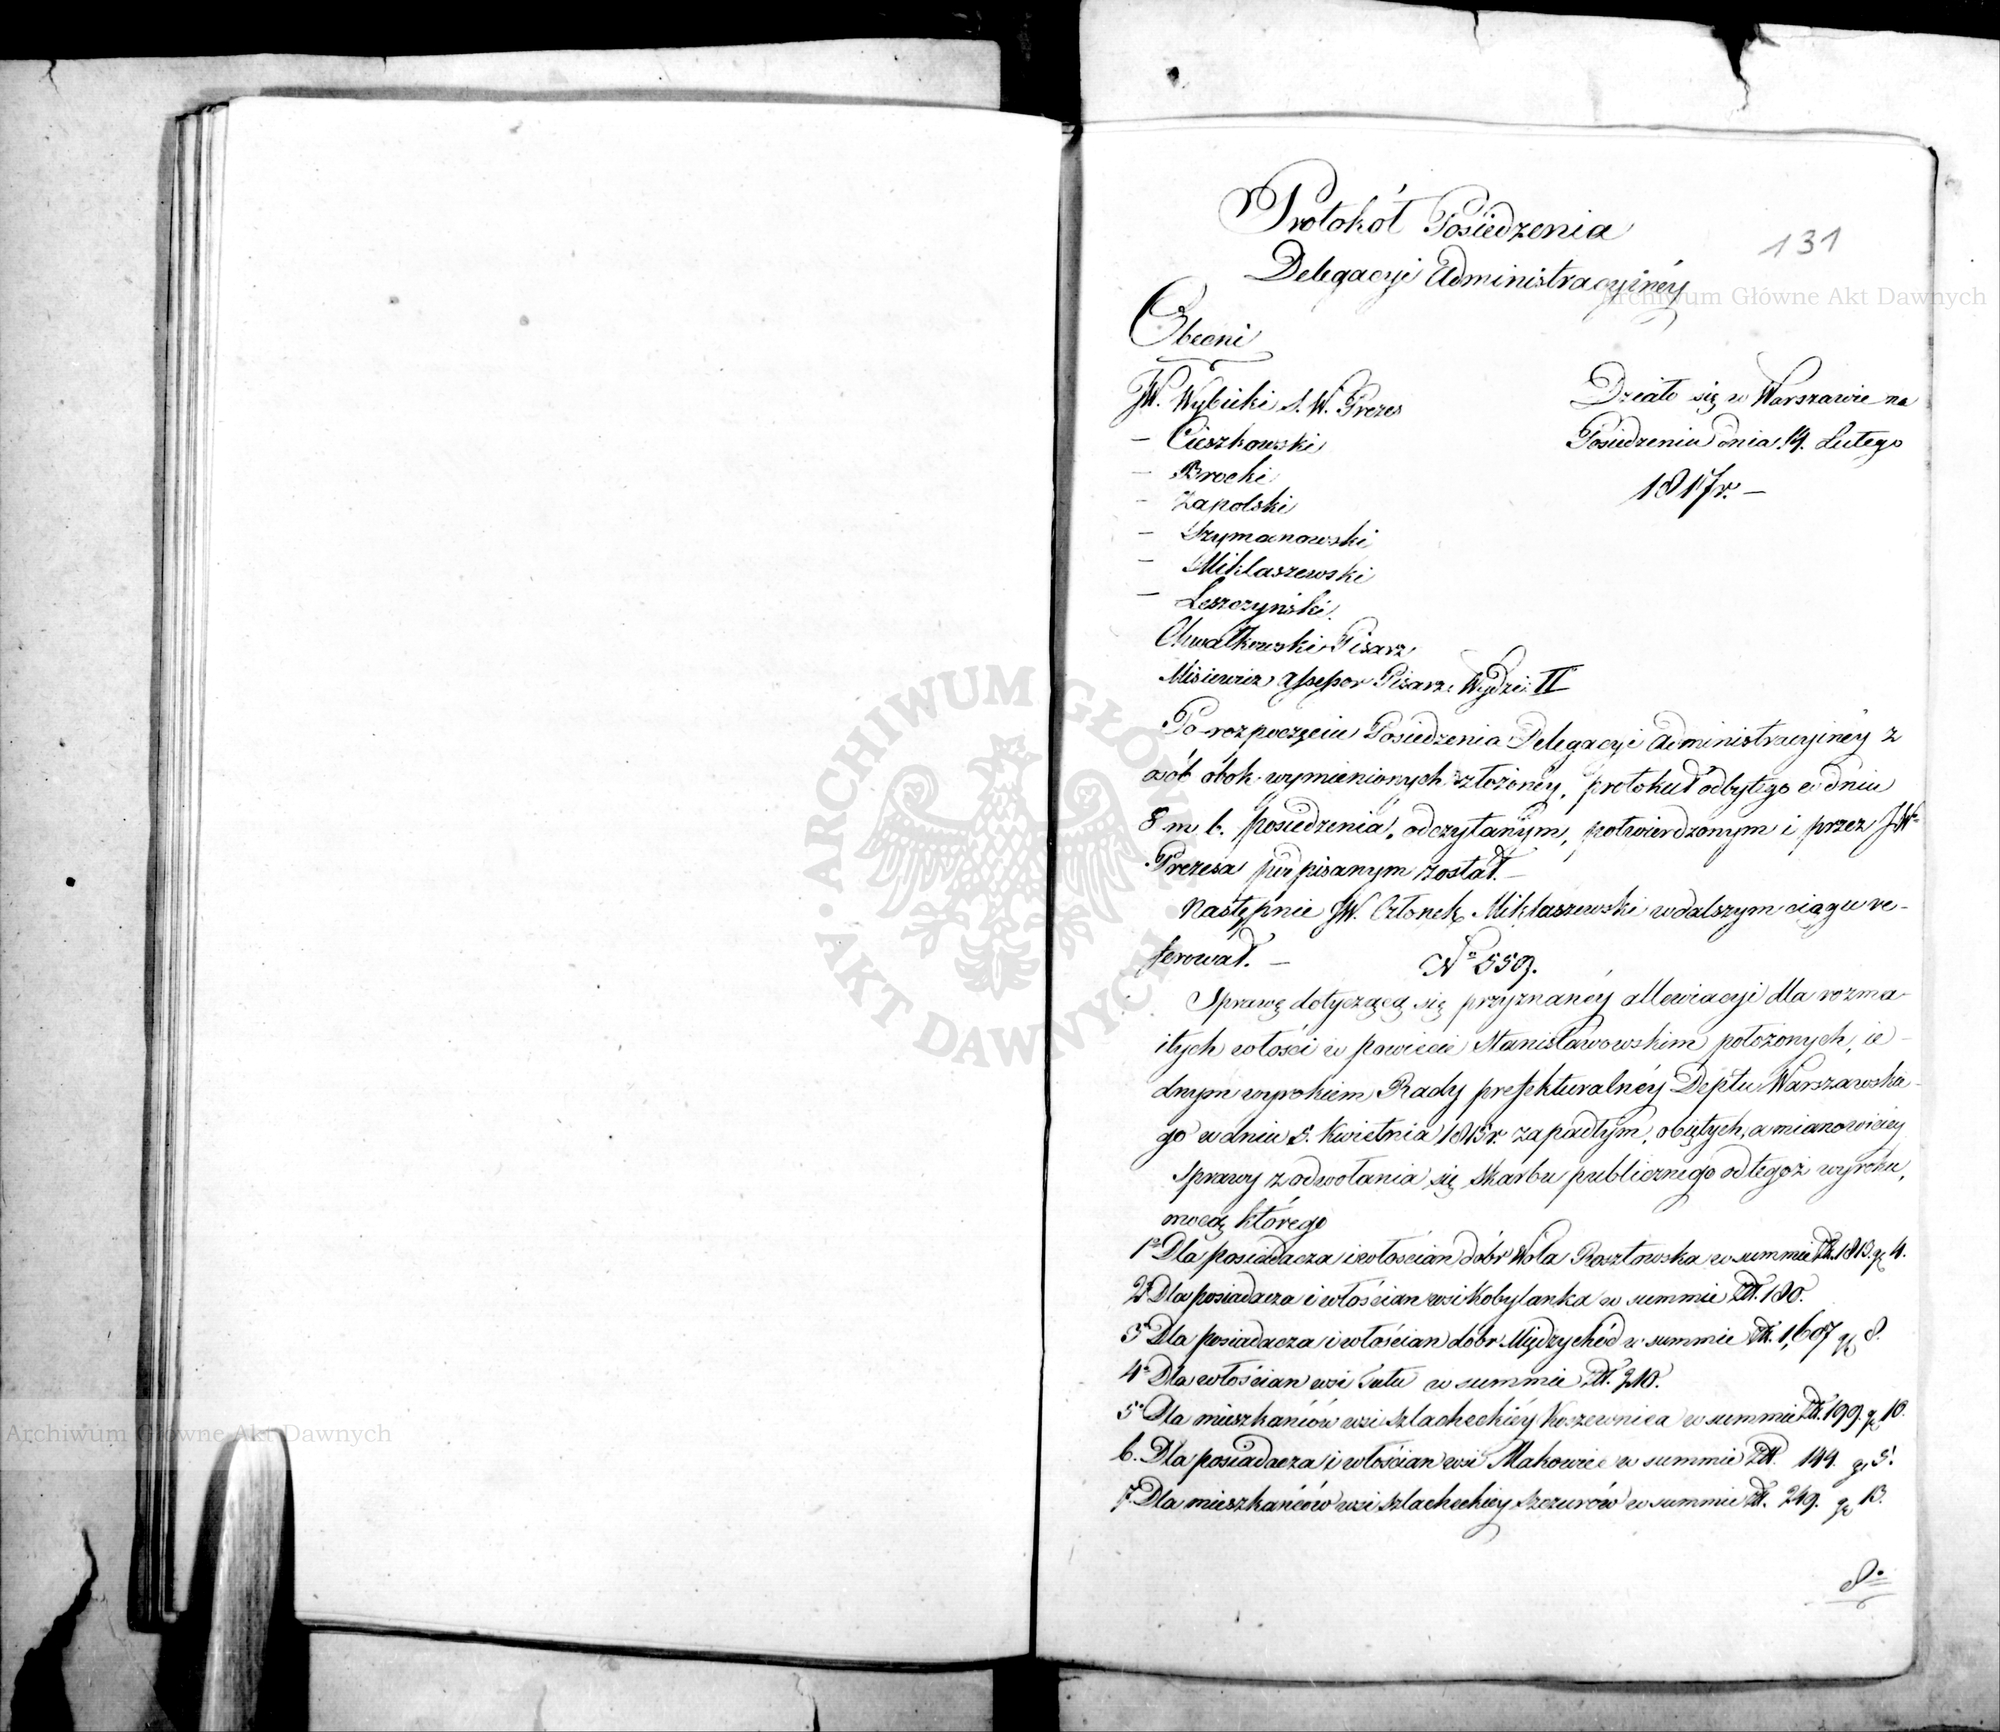 Protokół Posiedzenia
131
Delegacyi Administracyinéy
Archiwum Główne Akt Dawnych
Obecni
Działo się w Warszawie na
Posiedzeniu dnia 14. Lutego
1817r. —
JW. Wybicki S. W. Prezes
— Cieszkowski
— Brocki
— Zapolski
— Szymanowski
— Miklaszewski
— Leszczyński
Chwałkowski Pisarz
Misiewicz Assessor Pisarz Wydzi: II
Po rozpoczęciu Posiedzenia Delegacyi Administracyinéy z
osób obok wymienionych złożonéy, protokuł odbytego w dniu
8 m. b. posiedzenia, odczytanym, potwierdzonym i przez JW
Prezesa podpisanym został. —
Następnie JW. Członek Miklaszewski w dalszym ciągu re-
ferował. —
No 559.
Sprawę dotyczącą się przyznanéy allewiacyi dla rozma-
itych włości w powiecie Stanisławowskim położonych, ie-
dnym wyrokiem Rady prefekturalnéy Deptu Warszawskie-
go w dniu 5. Kwietnia 1815r. zapadłym, obiętych, a mianowiciey
sprawy z odwołania się Skarbu publicznego od tegoż wyroku,
mocą którego
1o Dla posiadacza i włościan dóbr Wola Rasztowska w summie Zł. 1813. gr 4.
2o Dla posiadacza i włościan wsi Kobylanka w summie Zł. 180.
3o Dla posiadacza i włościan dóbr Międzychód w summie Zł. 1,607 gr 8.
4o Dla włościan wsi w summie Zł. 910.
5o Dla mieszkańców wsi szlacheckiéy Koszewnica w summie Zł. 199. gr 10.
6. Dla posiadacza i włościan wsi Makowiec w summie Zł. 144. gr 5.
7. Dla mieszkańców wsi szlacheckiey Szczurów w summie Zł. 249. gr 13.
8o
ARCHIWUM GŁÓWNE AKT DAWNYCH
Archiwum Główne Akt Dawnych